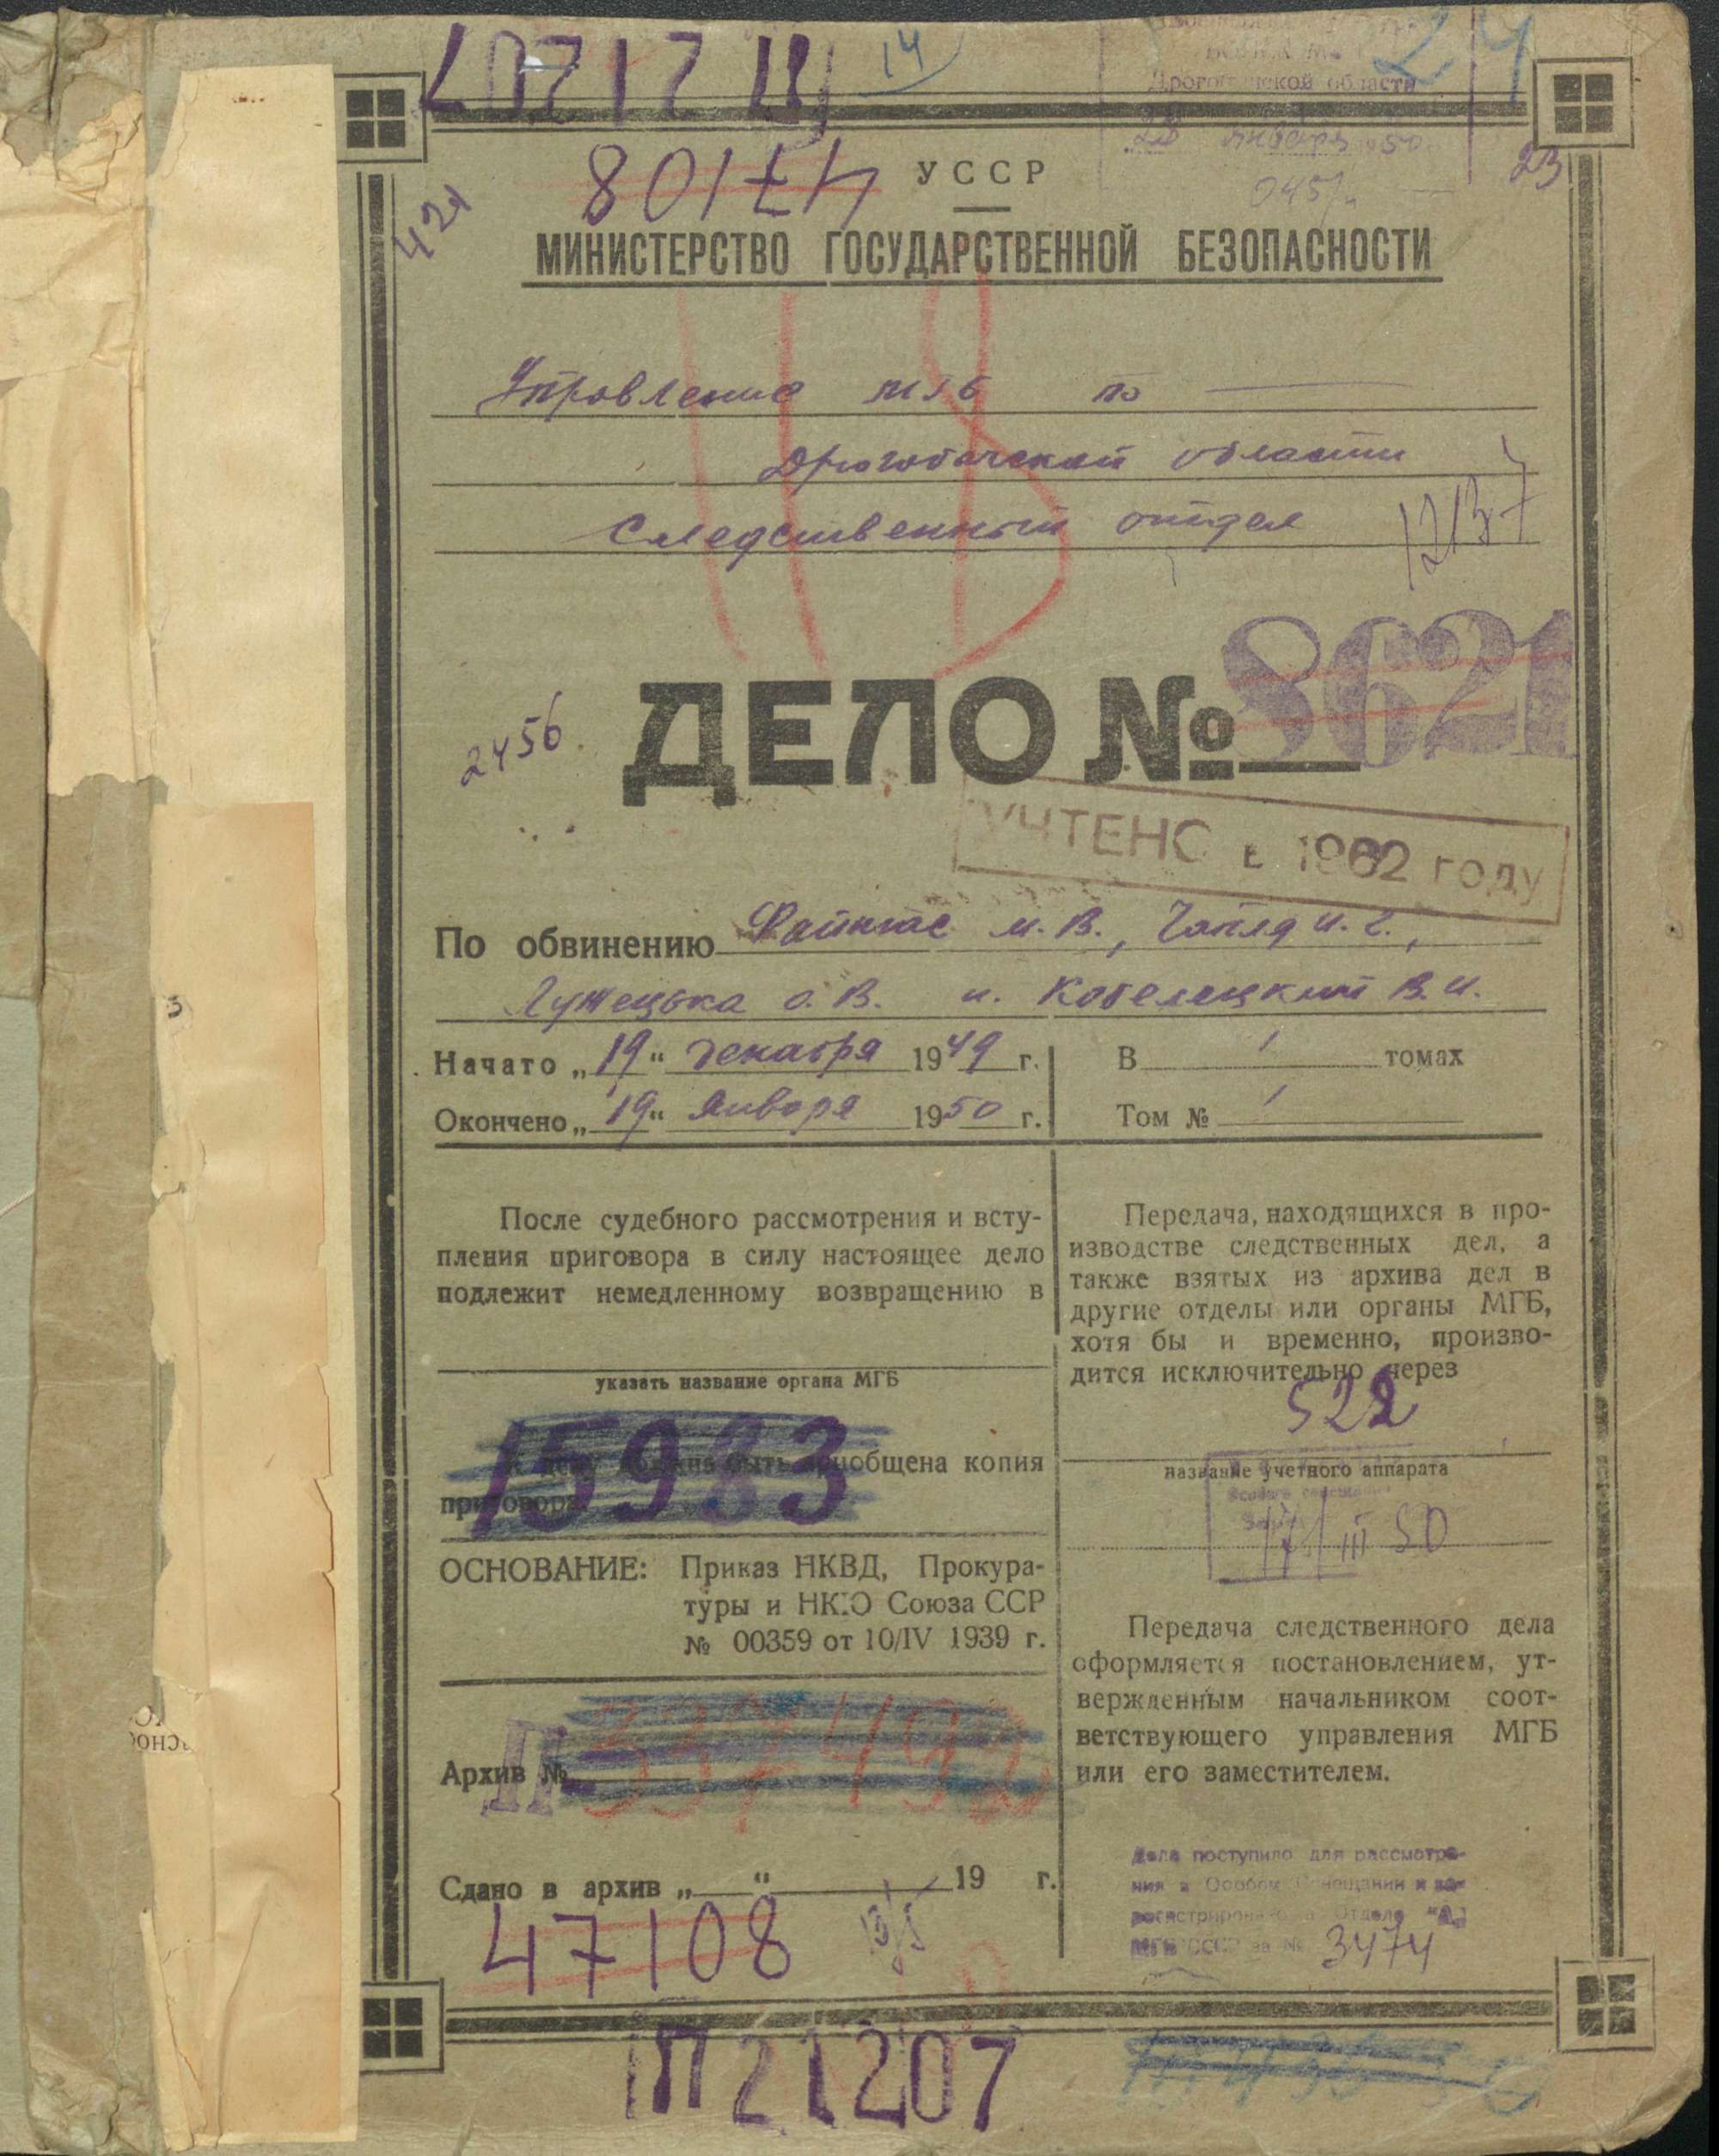 П 21207
14
24
Дрогобычской области
28 января 50
0457/
23
421
47108
УССР
МИНИСТЕРСТВО ГОСУДАРСТВЕННОЙ БЕЗОПАСНОСТИ
Управление МГБ по
Дрогобычской области
Следственный отдел
1213-7
ДЕЛО № 8621
2456
УЧТЕНО в 1962 году
По обвинению М.В., Чапля И. Г.,
Лужецька О. В. и Кобелецкий В. И.
Начато „19“ декабря 1949 г. В 1 томах
Окончено „19“ января 1950 г. Том № 1
После судебного рассмотрения и всту-
пления приговора в силу настоящее дело
подлежит немедленному возвращению в
указать название органа МГБ
15983
К делу должна быть приобщена копия
приговора.
ОСНОВАНИЕ: Приказ НКВД, Прокура-
туры и НКЮ Союза ССР
№ 00359 от 10/IV 1939 г.
Архив № П 337492
Сдано в архив „ “ 19 г.
47108
Передача, находящихся в про-
изводстве следственных дел, а
также взятых из архива дел в
другие отделы или органы МГБ,
хотя бы и временно, произво-
дится исключительно через
522
название учетного аппарата
Особого совещания
17/III 50
Передача следственного дела
оформляется постановлением, ут-
вержденным начальником соот-
ветствующего управления МГБ
или его заместителем.
Дело поступило для рассмотре-
ния в Особом Совещании и за-
регистрировано в Отделе "А"
МГБ СССР за № 3474
П 21207